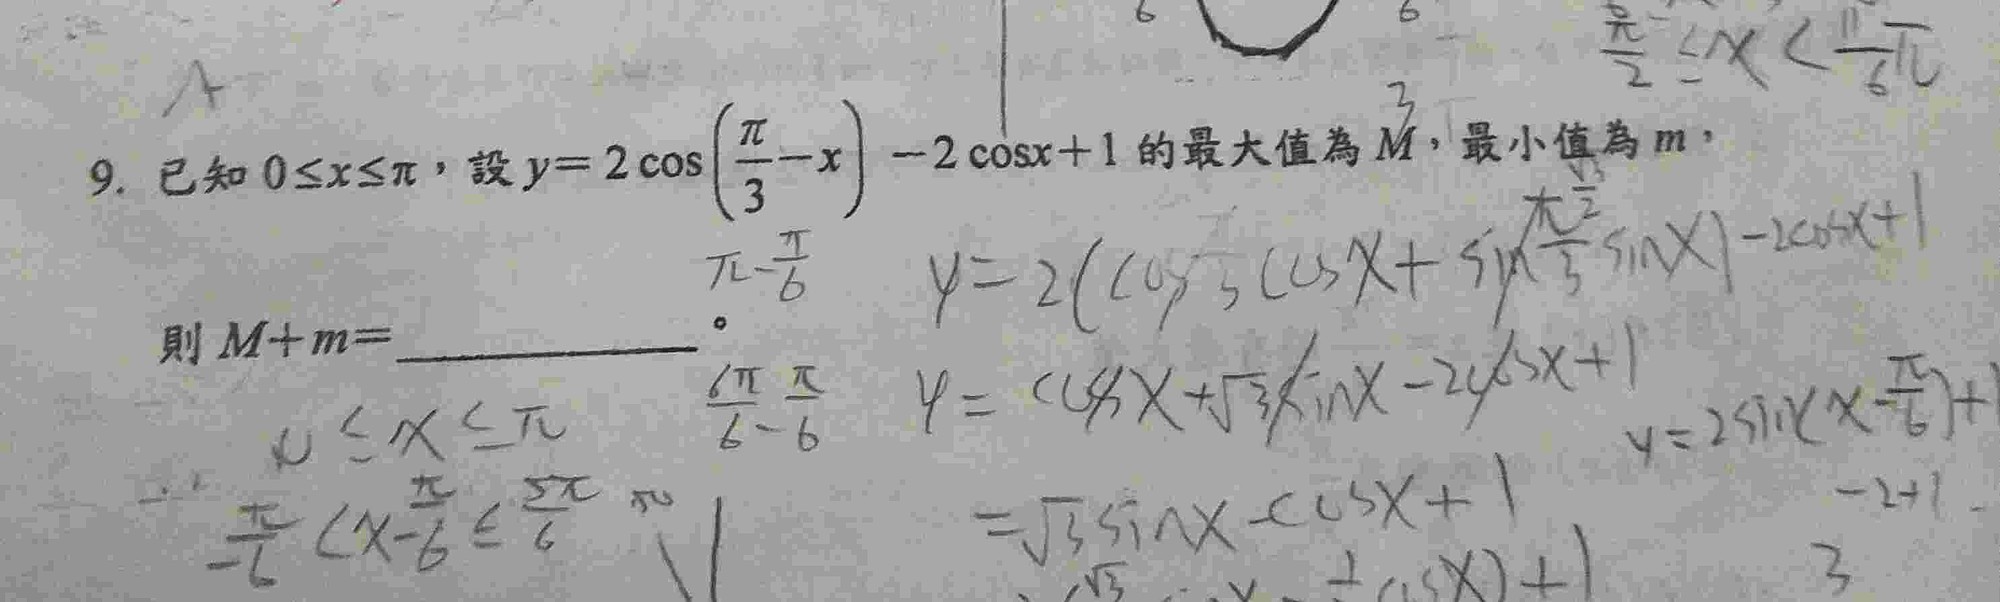 6 6
π/2 ≤ x < 11/6 π
A
3
9. 已知 0≤x≤π，設 y=2cos(π/3−x)−2cosx+1 的最大值為 M，最小值為 m，
π-π/6
y=2(cosπ/3 cosX+sinπ/3 sinX)-2cosx+1
√3/2
則 M+m=＿＿＿＿＿＿。
6π/6-π/6
y= cosX+√3sinX-2cosX+1
y=2sin(x-π/6)+1
0≤x≤π
-2+1
-π/6<x-π/6≤5π/6
=√3sinX-cosX+1
3